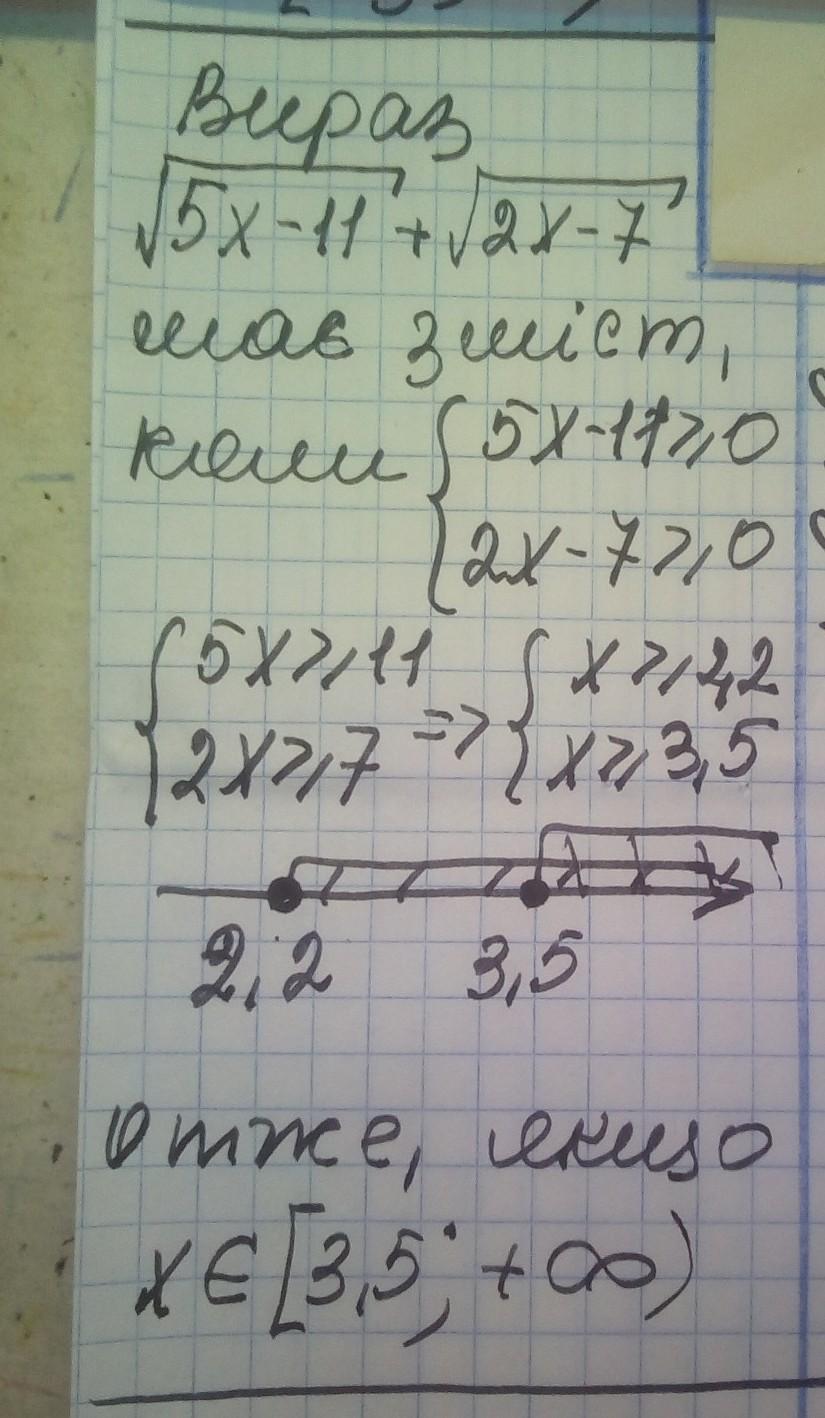 Вираз
√5x-11 + √2x-7
має зміст,
коли { 5x-11≥0
2x-7≥0
{ 5x≥11 => { x≥2,2
2x≥7 x≥3,5
2,2 3,5
Отже, якщо
x∈[3,5; +∞)